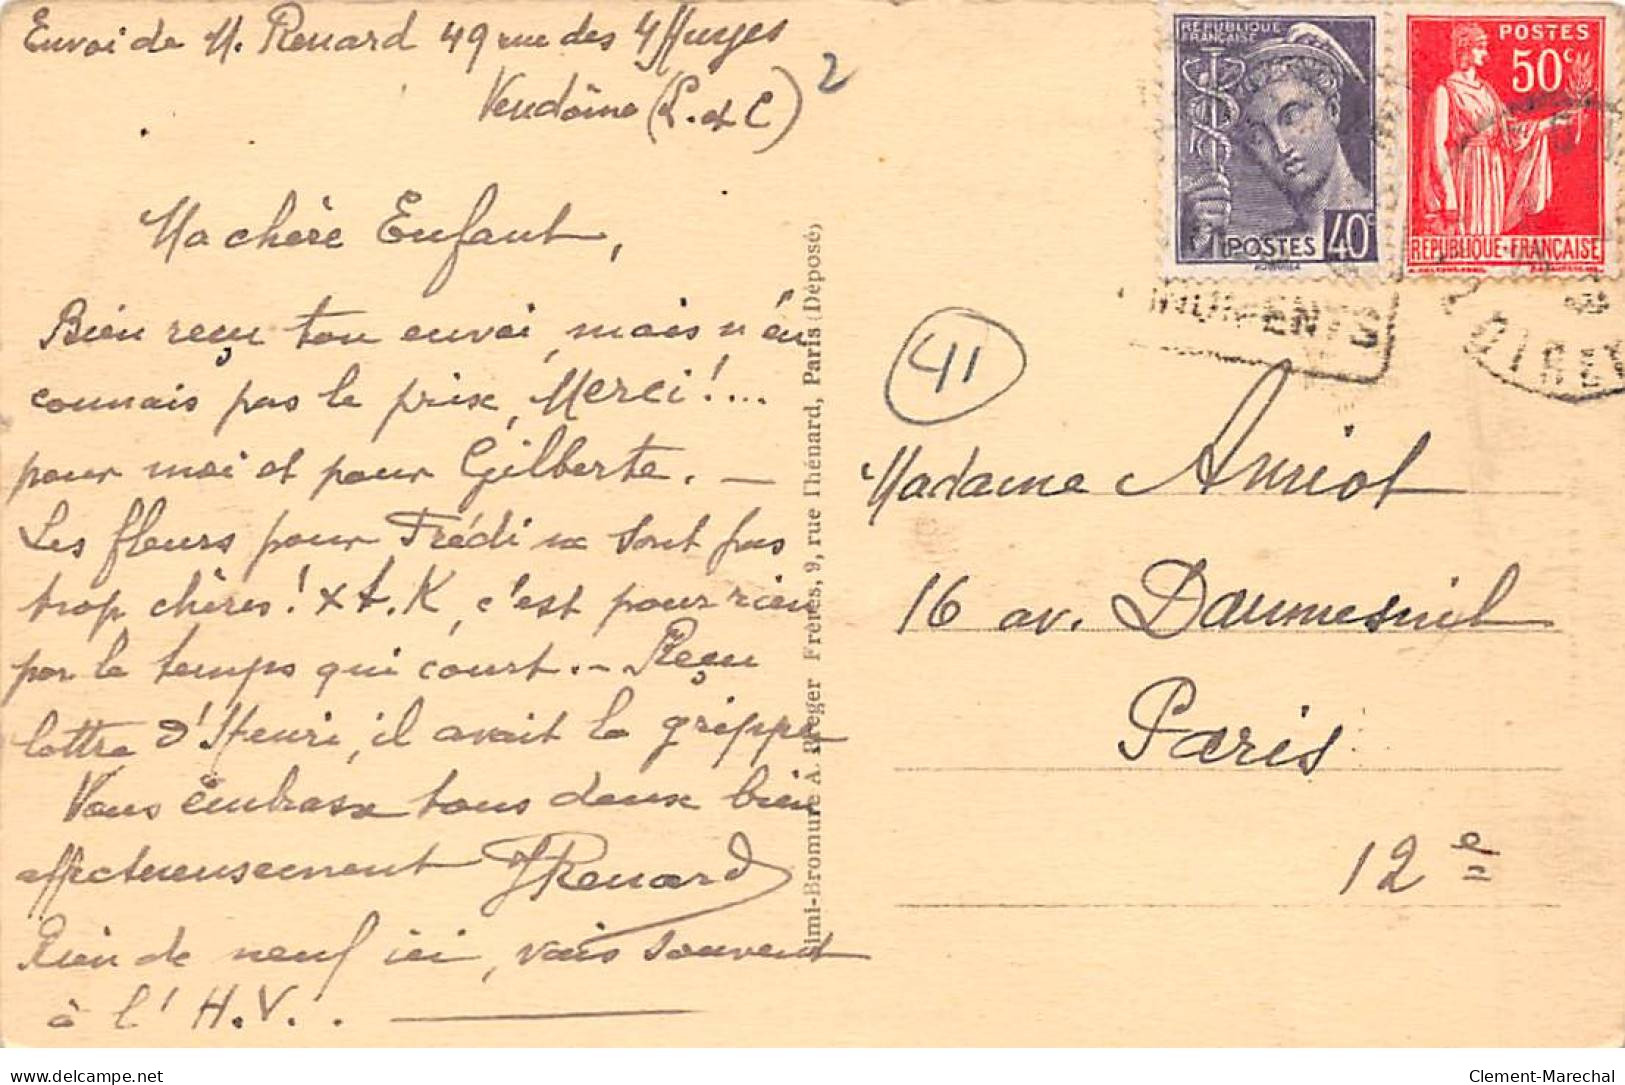 Envoi de M. Renard 49 rue des 4 Huyes
Vendôme (L. et C) 2
Ma chère Enfant,
Bien reçu ton envoi, mais n'en
connais pas le prix, Merci!...
pour moi et pour Gilberte. —
Les fleurs pour Frédi ne sont pas
trop chères! x t. K, c'est pour rien
par le temps qui court. - Reçu
lettre d'Henri, il avait la grippe
Vous embrasse tous deux bien
affectueusement JRenard
Rien de neuf ici, vais souvent
à l'H.V..
Simi-Bromure A. Breger Frères, 9, rue Thénard, Paris (Déposé)
RÉPUBLIQUE
FRANÇAISE
POSTES 40c
POSTES
50c
REPUBLIQUE FRANÇAISE
MONUMENTS
LOIR ET
41
Madame Amiot
16 av. Daumesnil
Paris
12e
Clement-Marechal